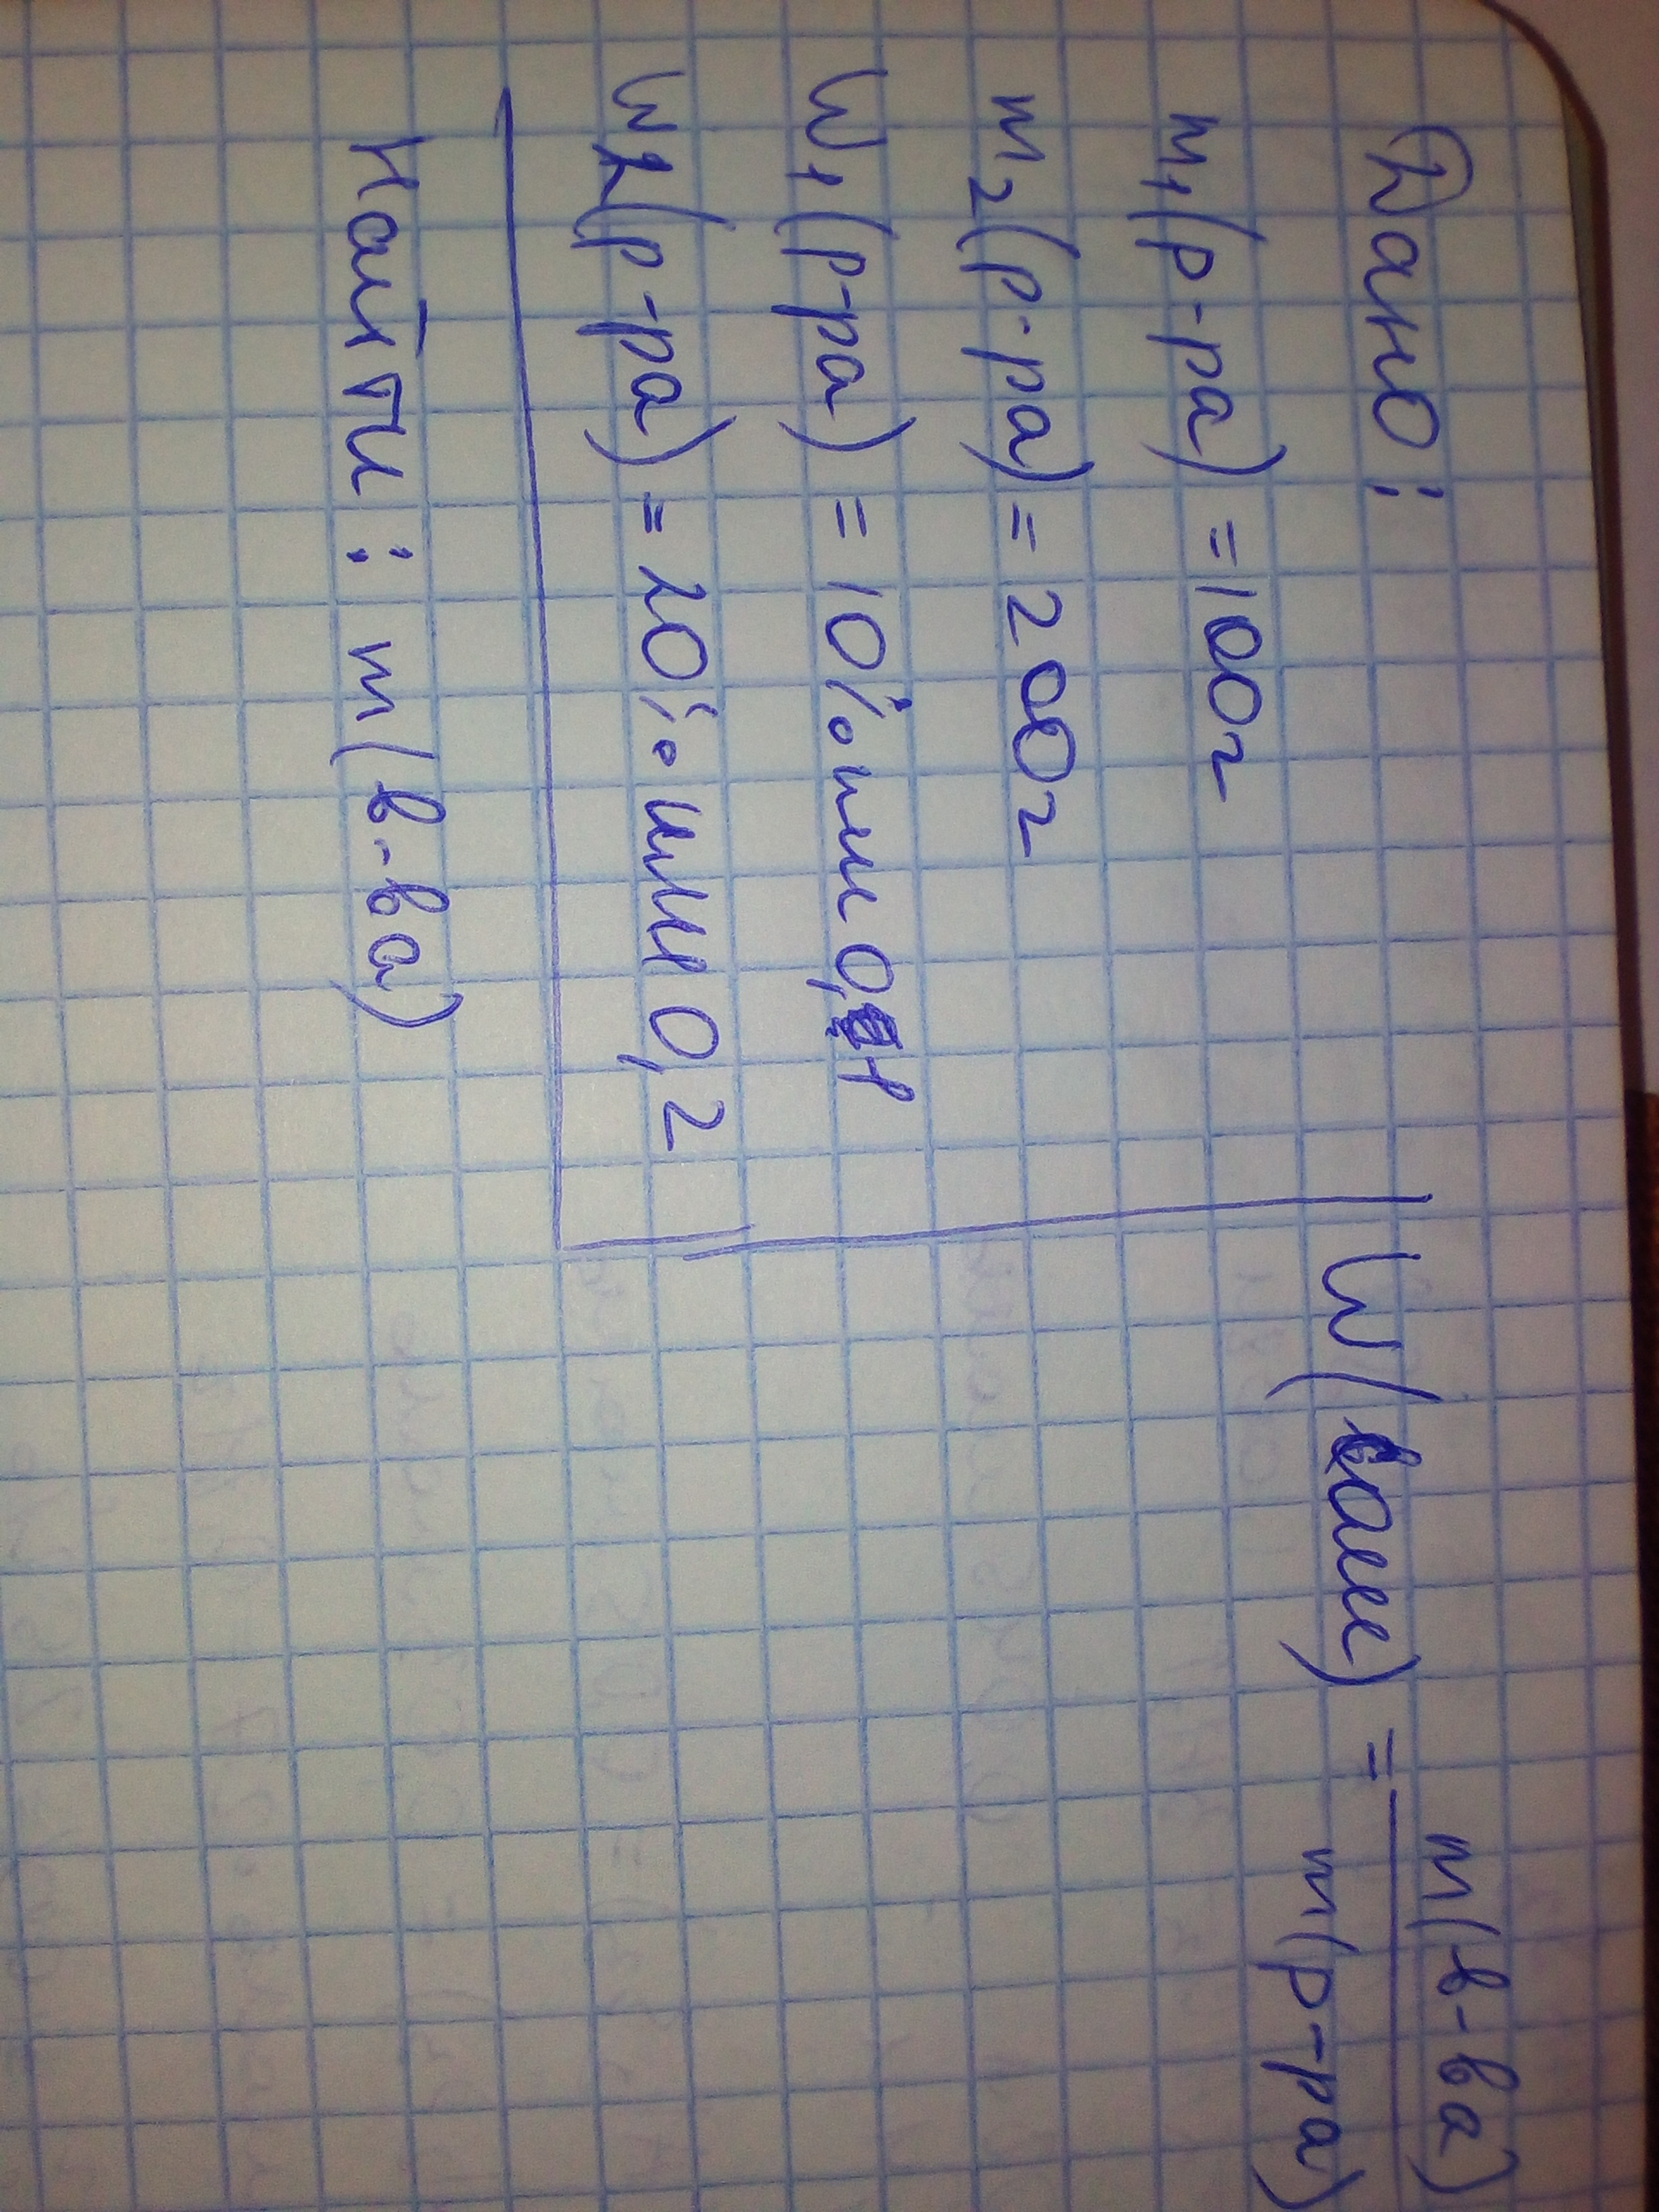 Дано:
m1(р-ра) = 100г
m2(р-ра) = 200г
W1(р-ра) = 10% или 0,1
W2(р-ра) = 20% или 0,2
Найти: m(в-ва)
W(соли) = m(в-ва)
m(р-ра)